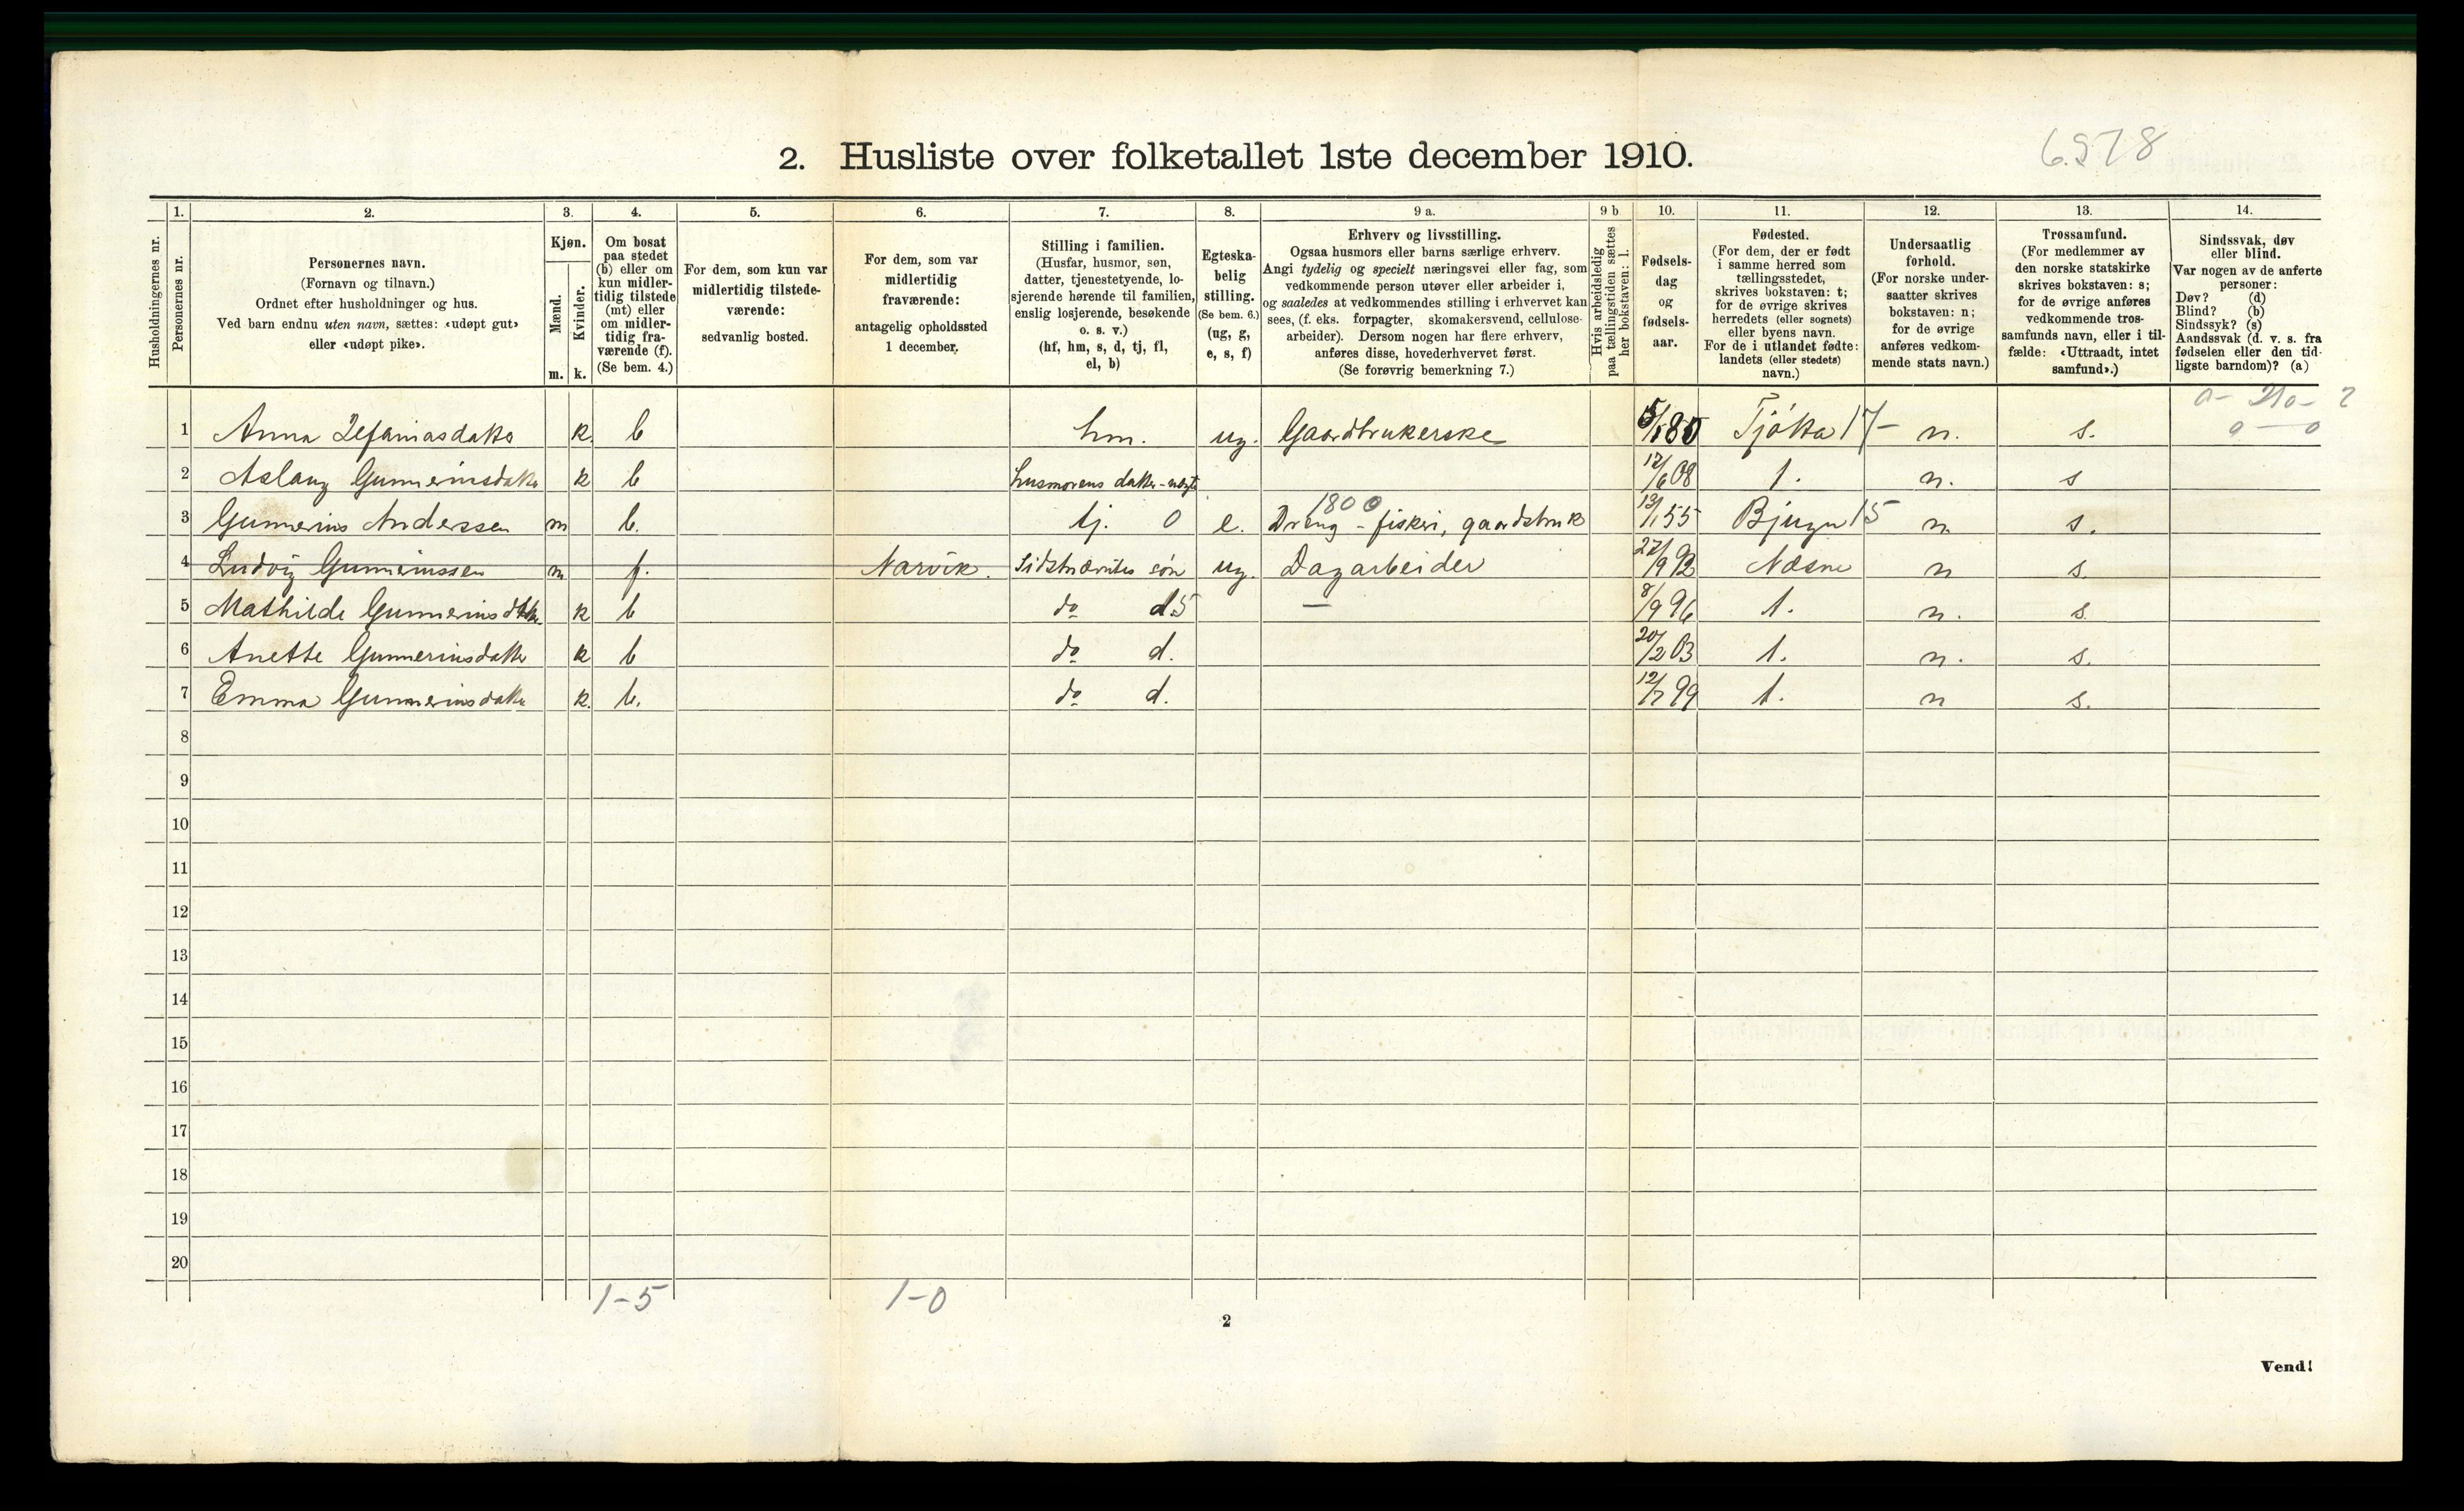 2. Husliste over folketallet 1ste december 1910.
6.578
Husholdningernes nr.
1. Personernes nr.
2. Personernes navn.
(Fornavn og tilnavn.)
Ordnet efter husholdninger og hus.
Ved barn endnu uten navn, sættes: «udøpt gut»
eller «udøpt pike».
3. Kjøn.
Mænd. m.
Kvinder. k.
4. Om bosat
paa stedet
(b) eller om
kun midler-
tidig tilstede
(mt) eller
om midler-
tidig fra-
værende (f).
(Se bem. 4.)
5. For dem, som kun var
midlertidig tilstede-
værende:
sedvanlig bosted.
6. For dem, som var
midlertidig
fraværende:
antagelig opholdssted
1 december.
7. Stilling i familien.
(Husfar, husmor, søn,
datter, tjenestetyende, lo-
sjerende hørende til familien,
enslig losjerende, besøkende
o. s. v.)
(hf, hm, s, d, tj, fl,
el, b)
8. Egteska-
belig
stilling.
(Se bem. 6.)
(ug, g,
e, s, f)
9 a. Erhverv og livsstilling.
Ogsaa husmors eller barns særlige erhverv.
Angi tydelig og specielt næringsvei eller fag, som
vedkommende person utøver eller arbeider i,
og saaledes at vedkommendes stilling i erhvervet kan
sees, (f. eks. forpagter, skomakersvend, cellulose-
arbeider). Dersom nogen har flere erhverv,
anføres disse, hovederhvervet først.
(Se forøvrig bemerkning 7.)
9 b Hvis arbeidsledig
paa tællingstiden sættes
her bokstaven: l.
10. Fødsels-
dag
og
fødsels-
aar.
11. Fødested.
(For dem, der er født
i samme herred som
tællingsstedet,
skrives bokstaven: t;
for de øvrige skrives
herredets (eller sognets)
eller byens navn.
For de i utlandet fødte:
landets (eller stedets)
navn.)
12. Undersaatlig
forhold.
(For norske under-
saatter skrives
bokstaven: n;
for de øvrige
anføres vedkom-
mende stats navn.)
13. Trossamfund.
(For medlemmer av
den norske statskirke
skrives bokstaven: s;
for de øvrige anføres
vedkommende tros-
samfunds navn, eller i til-
fælde: «Uttraadt, intet
samfund».)
14. Sindssvak, døv
eller blind.
Var nogen av de anførte
personer:
Døv? (d)
Blind? (b)
Sindssyk? (s)
Aandssvak (d. v. s. fra
fødselen eller den tid-
ligste barndom)? (a)
1 Anna Zefaniasdatter k. b hm. ug. Gaardbrukerske 80 Tjøtta 17- n. s. 0 - 0
2 Aslaug Gunnerinsdatter k b husmorens datter 17/6 08 t. n. s
3 Gunnerius Anderssen m b. tj. 0 e. 1800 Dreng - fiskeri, gaardsbruk 13/1 55 Bjugn 15 n s.
4 Ludvig Gunneriussen m f. Narvik. Sidstnævntes søn ug. Dagarbeider 27/9 92 Næsne n s.
5 Mathilde Gunnerinsdatter k b do d 5 — 8/9 96 t. n. s.
6 Anette Gunnerinsdatter k b do d. 20/2 03 t. n. s.
7 Emma Gunnerinsdatter k. b. do d. 12/7 99 t. n s.
8
9
10
11
12
13
14
15
16
17
18
19
20
1-5 1-0
2
Vend!